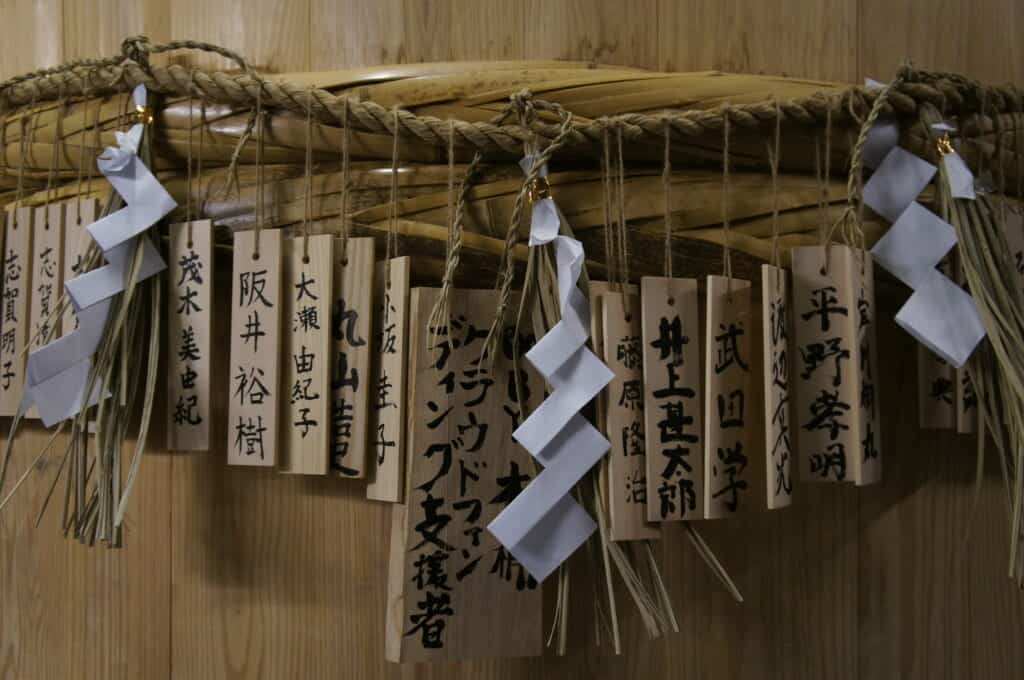 志賀明子
志賀
茂木美由紀
阪井裕樹
大瀬由紀子
丸山
小坂圭子
クラウドファン
ディング支援者
藤原隆治
井上甚太郎
武田学
渡辺
平野孝明
典